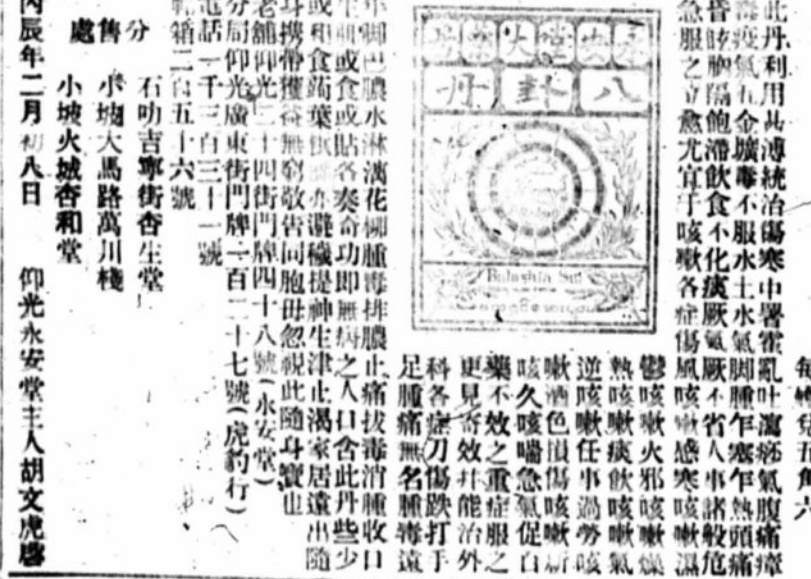 此丹利用甚溥統治傷寒中暑霍亂吐瀉痧氣腹痛瘴
毒疫氣五金壙毒不服水土水氣脚腫乍寒乍熱頭痛
昏眩胸隔飽滯飲食不化痰厥氣厥不省人事諸般危
急服之立愈尤宜于咳嗽各症傷風咳嗽感寒咳嗽濕
永安堂大藥房
八卦丹
鬱咳嗽火邪咳嗽燥
熱咳嗽痰飲咳嗽氣
逆咳嗽任事過勞咳
嗽酒色損傷咳嗽新
咳久咳喘急氣促百
藥不效之重症服之
更見奇效幷能治外
科各症刀傷跌打手
足腫痛無名腫毒遠
年脚巴膿水淋漓花柳腫毒排膿止痛拔毒消腫收口
或食或貼各奏奇功即無病之人口含此丹些少
或和食蒟葉檳榔亦避穢提神生津止渴家居遠出隨
身携帶獲益無窮敬告同胞毋忽視此隨身寶也
老舖仰光二十四街門牌四十八號(永安堂)
分局仰光廣東街門牌一百二十七號(虎豹行)
電話一千三百三十一號
箱二百五十六號
分售處
石叻吉寧街杏生堂
小坡大馬路萬川棧
小坡火城杏和堂
丙辰年二月初八日 仰光永安堂主人胡文虎啓